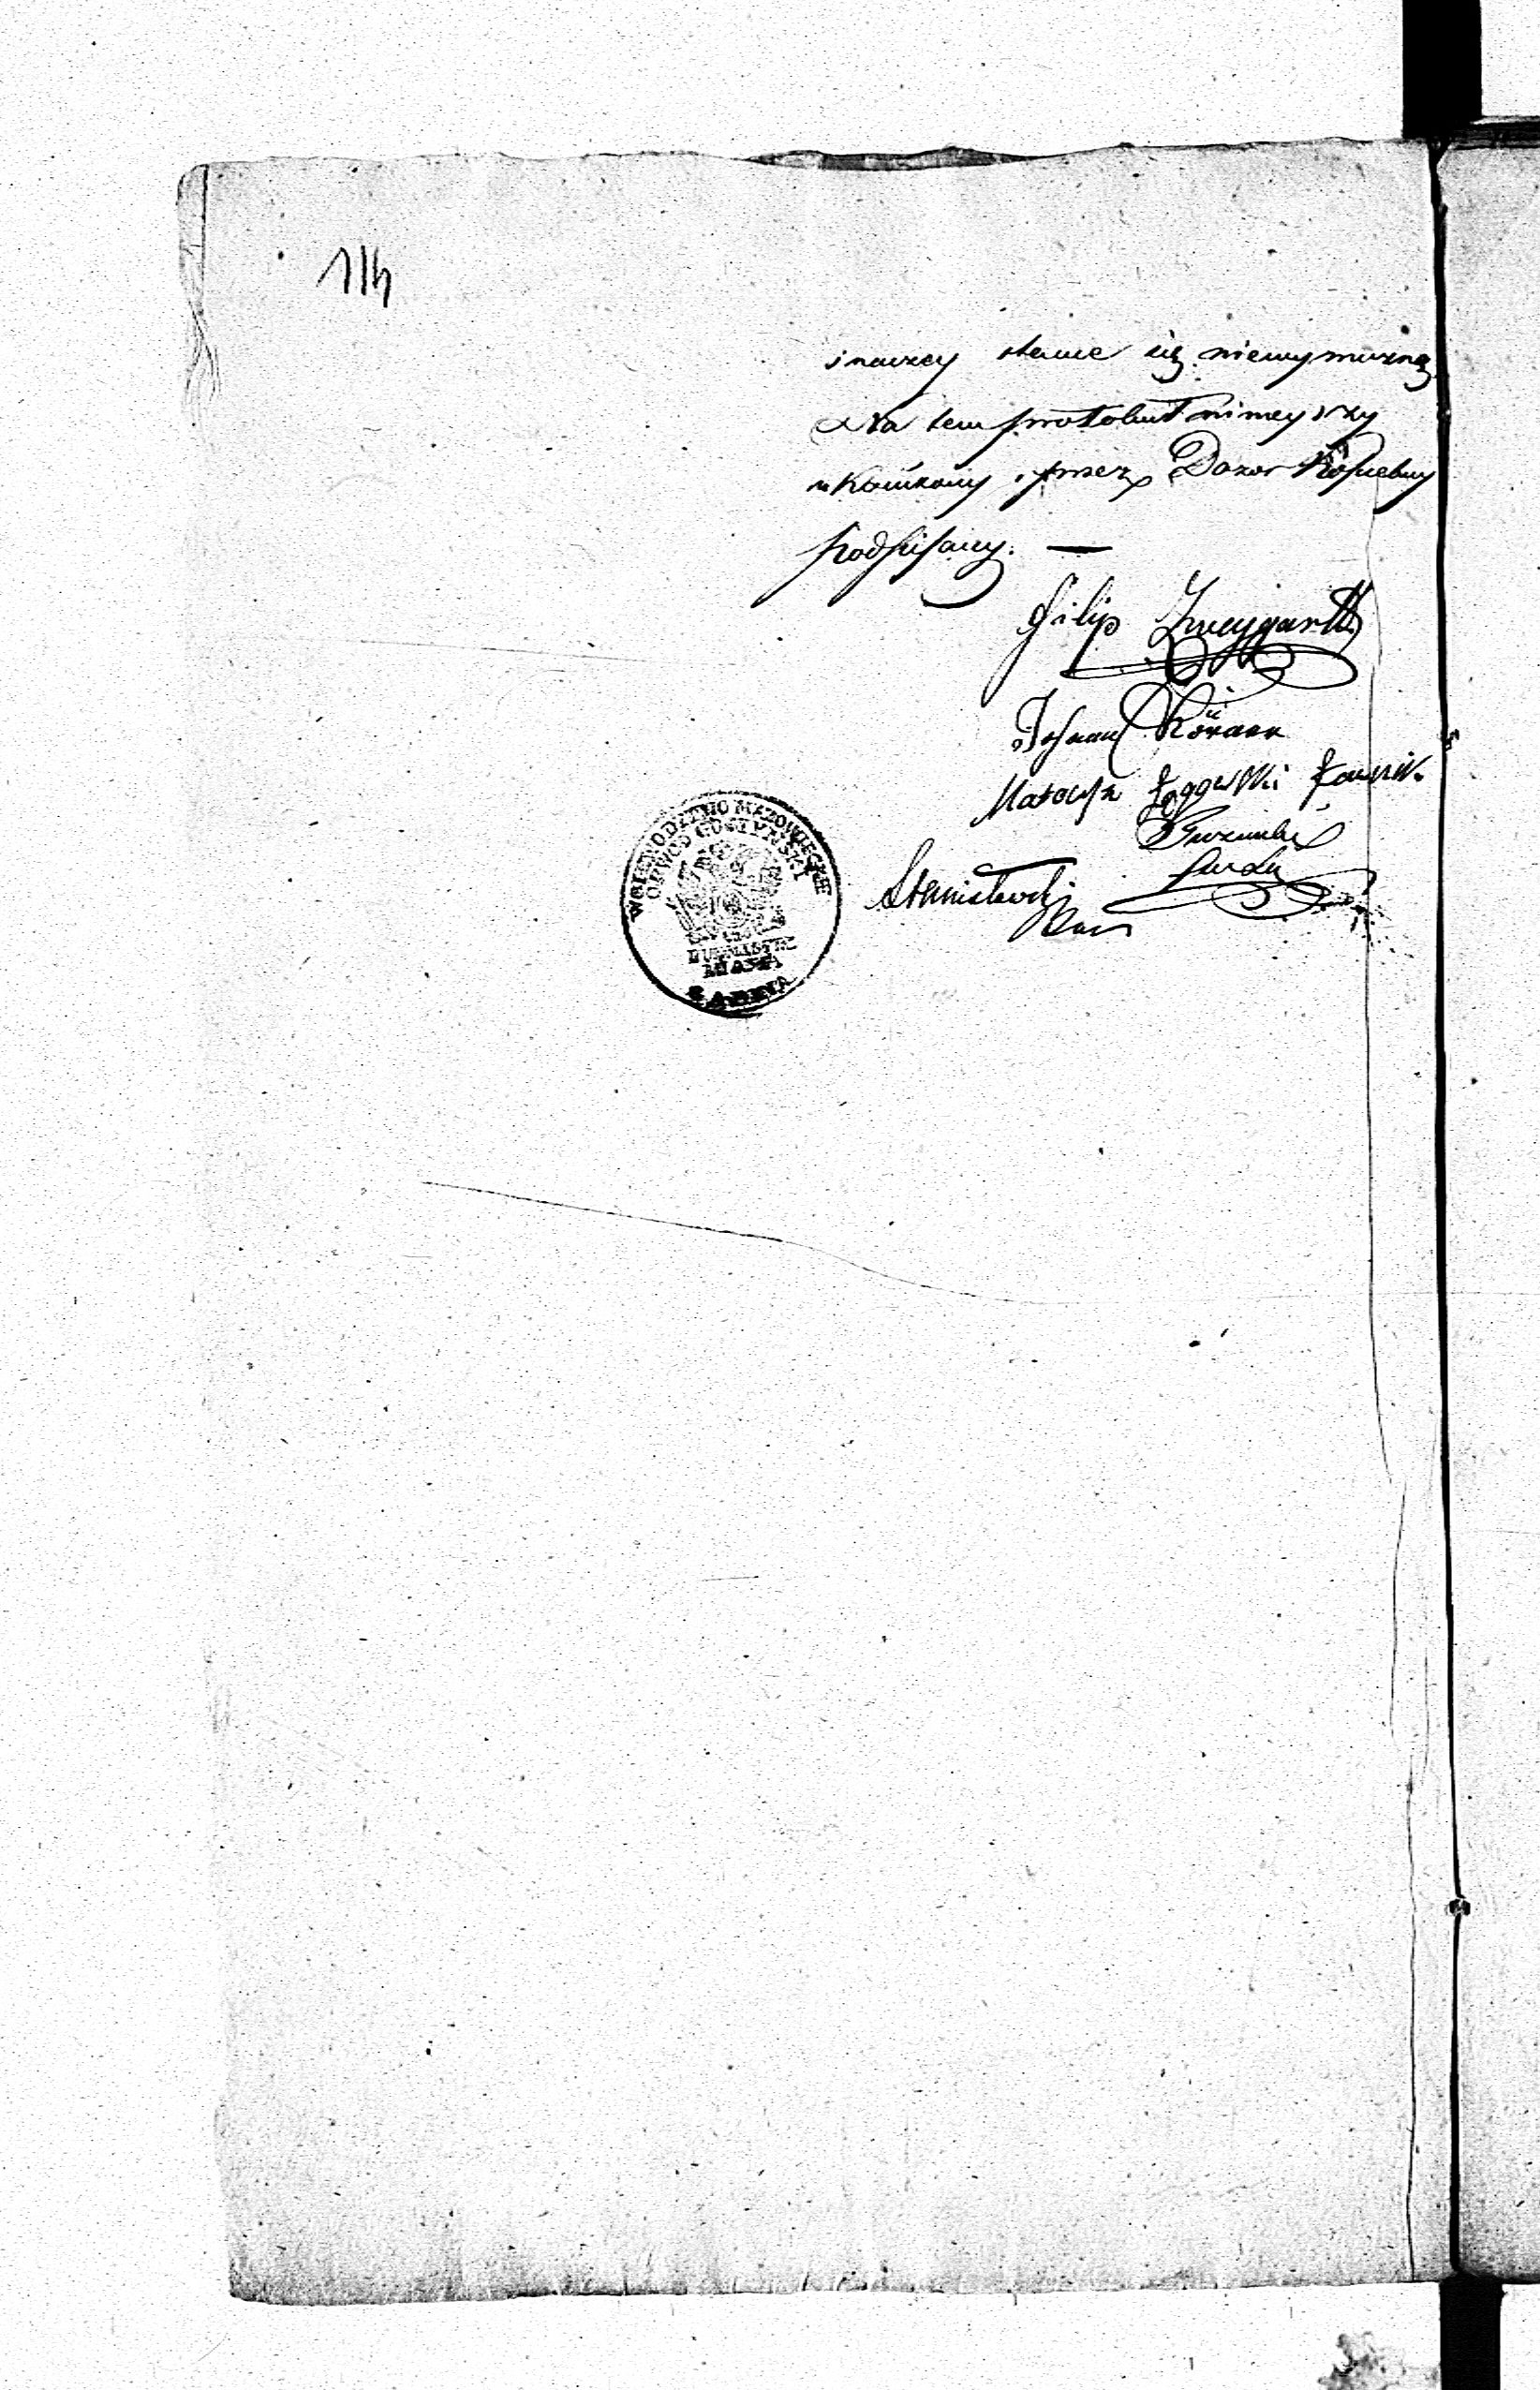 114
inaczey stawie się niewymuzną
Na tem protokuł ninieyszy
ukończony i przez Dozor Kościelny
podpisany. —
Filip Zweygartt
Johann
Mateusz Łaggewski Ławnik
Stanisławski
WOIEWODZTWO MAZOWIECKIE
OBWOD GOSTYNSKI
BURMISTRZ
MIASTA